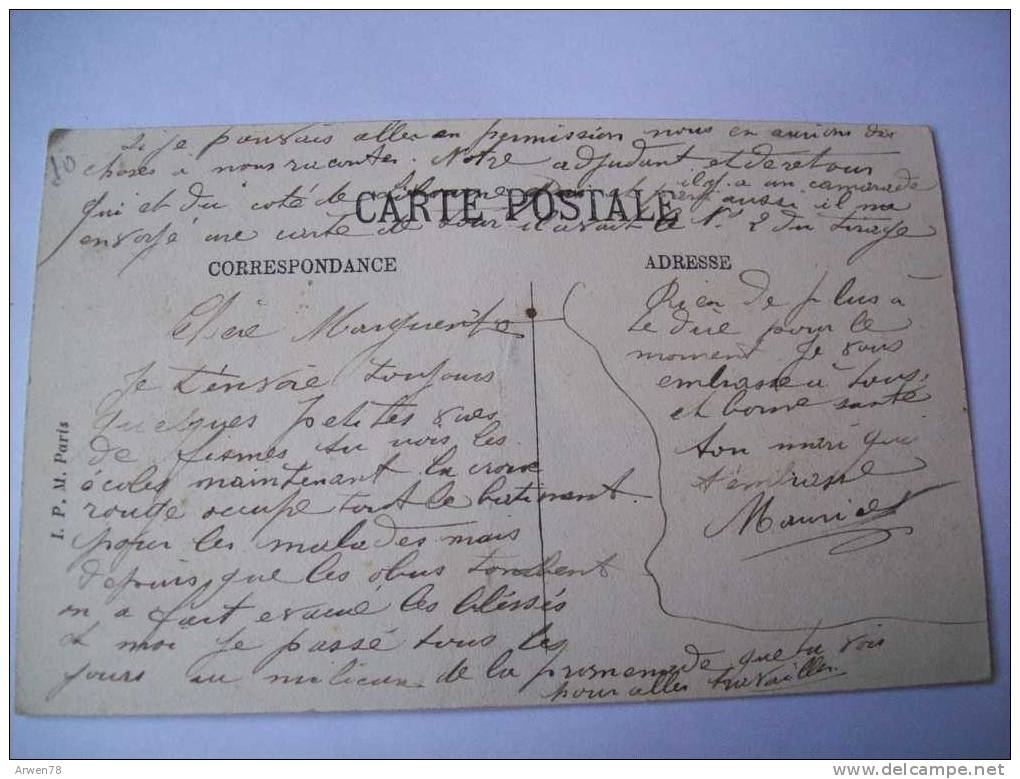 Si je pouvais aller en permission nous en aurions des
choses à nous raconter. Notre adjudant et de retour
qui et du coté de il y a un camarade
aussi il ma
envoyé une carte de il avait le N° 2 du tirage
CARTE POSTALE
CORRESPONDANCE
ADRESSE
Chère Marguerite
Je t'envoie toujours
quelques petites vues
de fismes tu vois les
écoles maintenant la croix
rouge occupe tout le batiment
pour les malades mais
depuis que les obus tombent
on a fait evacué les bléssés
et moi je passé tous les
jours au milieu de la promenade que tu vois
pour aller travailler
Rien de plus à
te dire pour le
moment je vous
embrasse à tous
et bonne santé
ton mari qui
t'embrasse
Maurice
I. P. M. Paris
10
Arwen78
http://www.delcampe.net